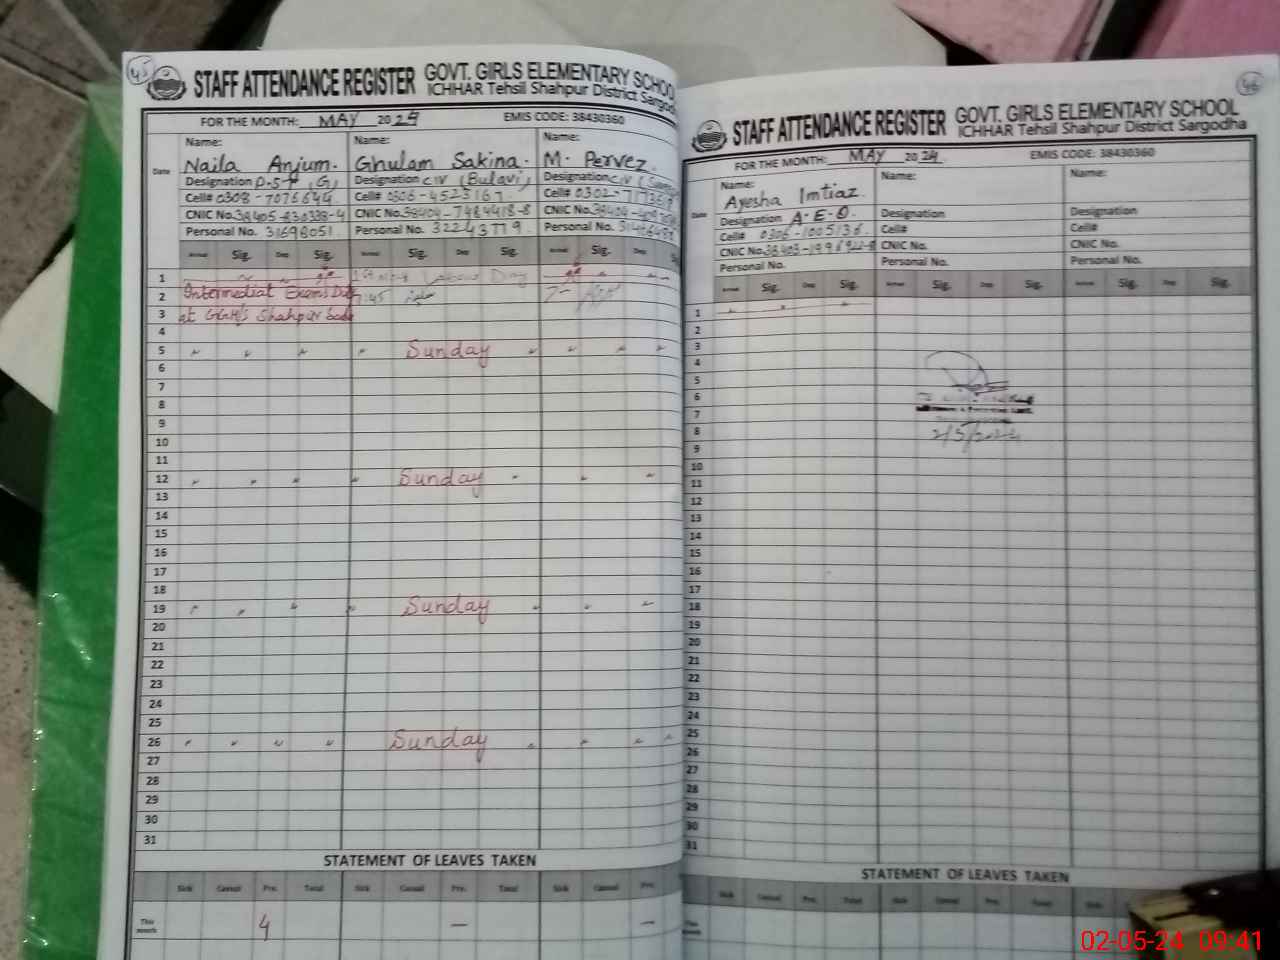 45
STAFF ATTENDANCE REGISTER GOVT. GIRLS ELEMENTARY SCHOOL
ICHHAR Tehsil Shahpur District Sargodha
FOR THE MONTH: MAY 2024 EMIS CODE: 38430360
Date
Name: Name: Name:
Naila Anjum. Ghulam Sakina. M. Pervez.
Designation P.S.T (G) Designation C IV (Bulavi) Designation C IV
Cell# 0308-7076644 Cell# 0306-4523167 Cell# 0302-
CNIC No. CNIC No. 38404-7484418-8 CNIC No. 38404-
Personal No. 31698051. Personal No. 32243779. Personal No.
Arrival Sig. Dep Sig. Arrival Sig. Dep Sig. Arrival Sig. Dep
1 1st May Labour Day
2 Intermediat Exams Duty 7:45 7-
3 at GGHS Shahpur
4
5 " " " " Sunday " " " "
6
7
8
9
10
11
12 " " " " Sunday " " "
13
14
15
16
17
18
19 " " " " Sunday " " "
20
21
22
23
24
25
26 " " " " Sunday " " " "
27
28
29
30
31
STATEMENT OF LEAVES TAKEN
Sick Casual Prv. Total Sick Casual Prv. Total Sick Casual Prv.
This month 4 — —
46
STAFF ATTENDANCE REGISTER GOVT. GIRLS ELEMENTARY SCHOOL
ICHHAR Tehsil Shahpur District Sargodha
FOR THE MONTH: MAY 2024. EMIS CODE: 38430360
Date
Name: Name: Name:
Ayesha Imtiaz.
Designation A.E.O. Designation Designation
Cell# 0306-1005136 Cell# Cell#
CNIC No. CNIC No. CNIC No.
Personal No. Personal No. Personal No.
Arrival Sig. Dep Sig. Arrival Sig. Dep Sig. Arrival Sig. Dep Sig.
1 " " "
2
3
4
5
6
7
8 2/5/2024
9
10
11
12
13
14
15
16
17
18
19
20
21
22
23
24
25
26
27
28
29
30
31
STATEMENT OF LEAVES TAKEN
Sick Casual Prv. Total Sick Casual Prv. Total Sick
This month
02-05-24 09:41